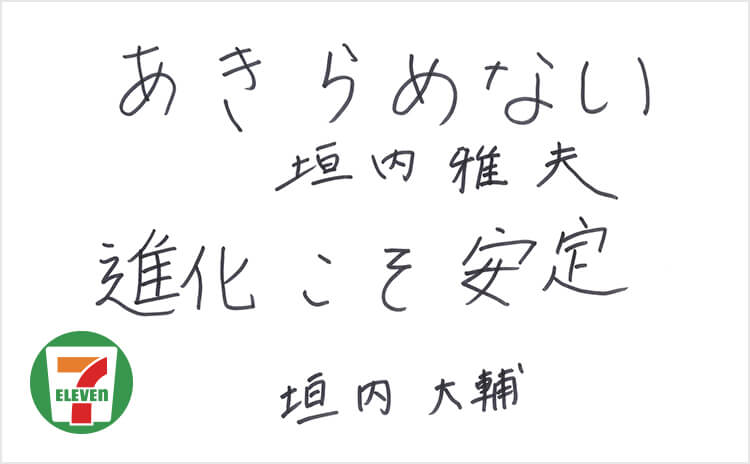 あきらめない
垣内雅夫
進化こそ安定
垣内大輔
7
ELEVEN